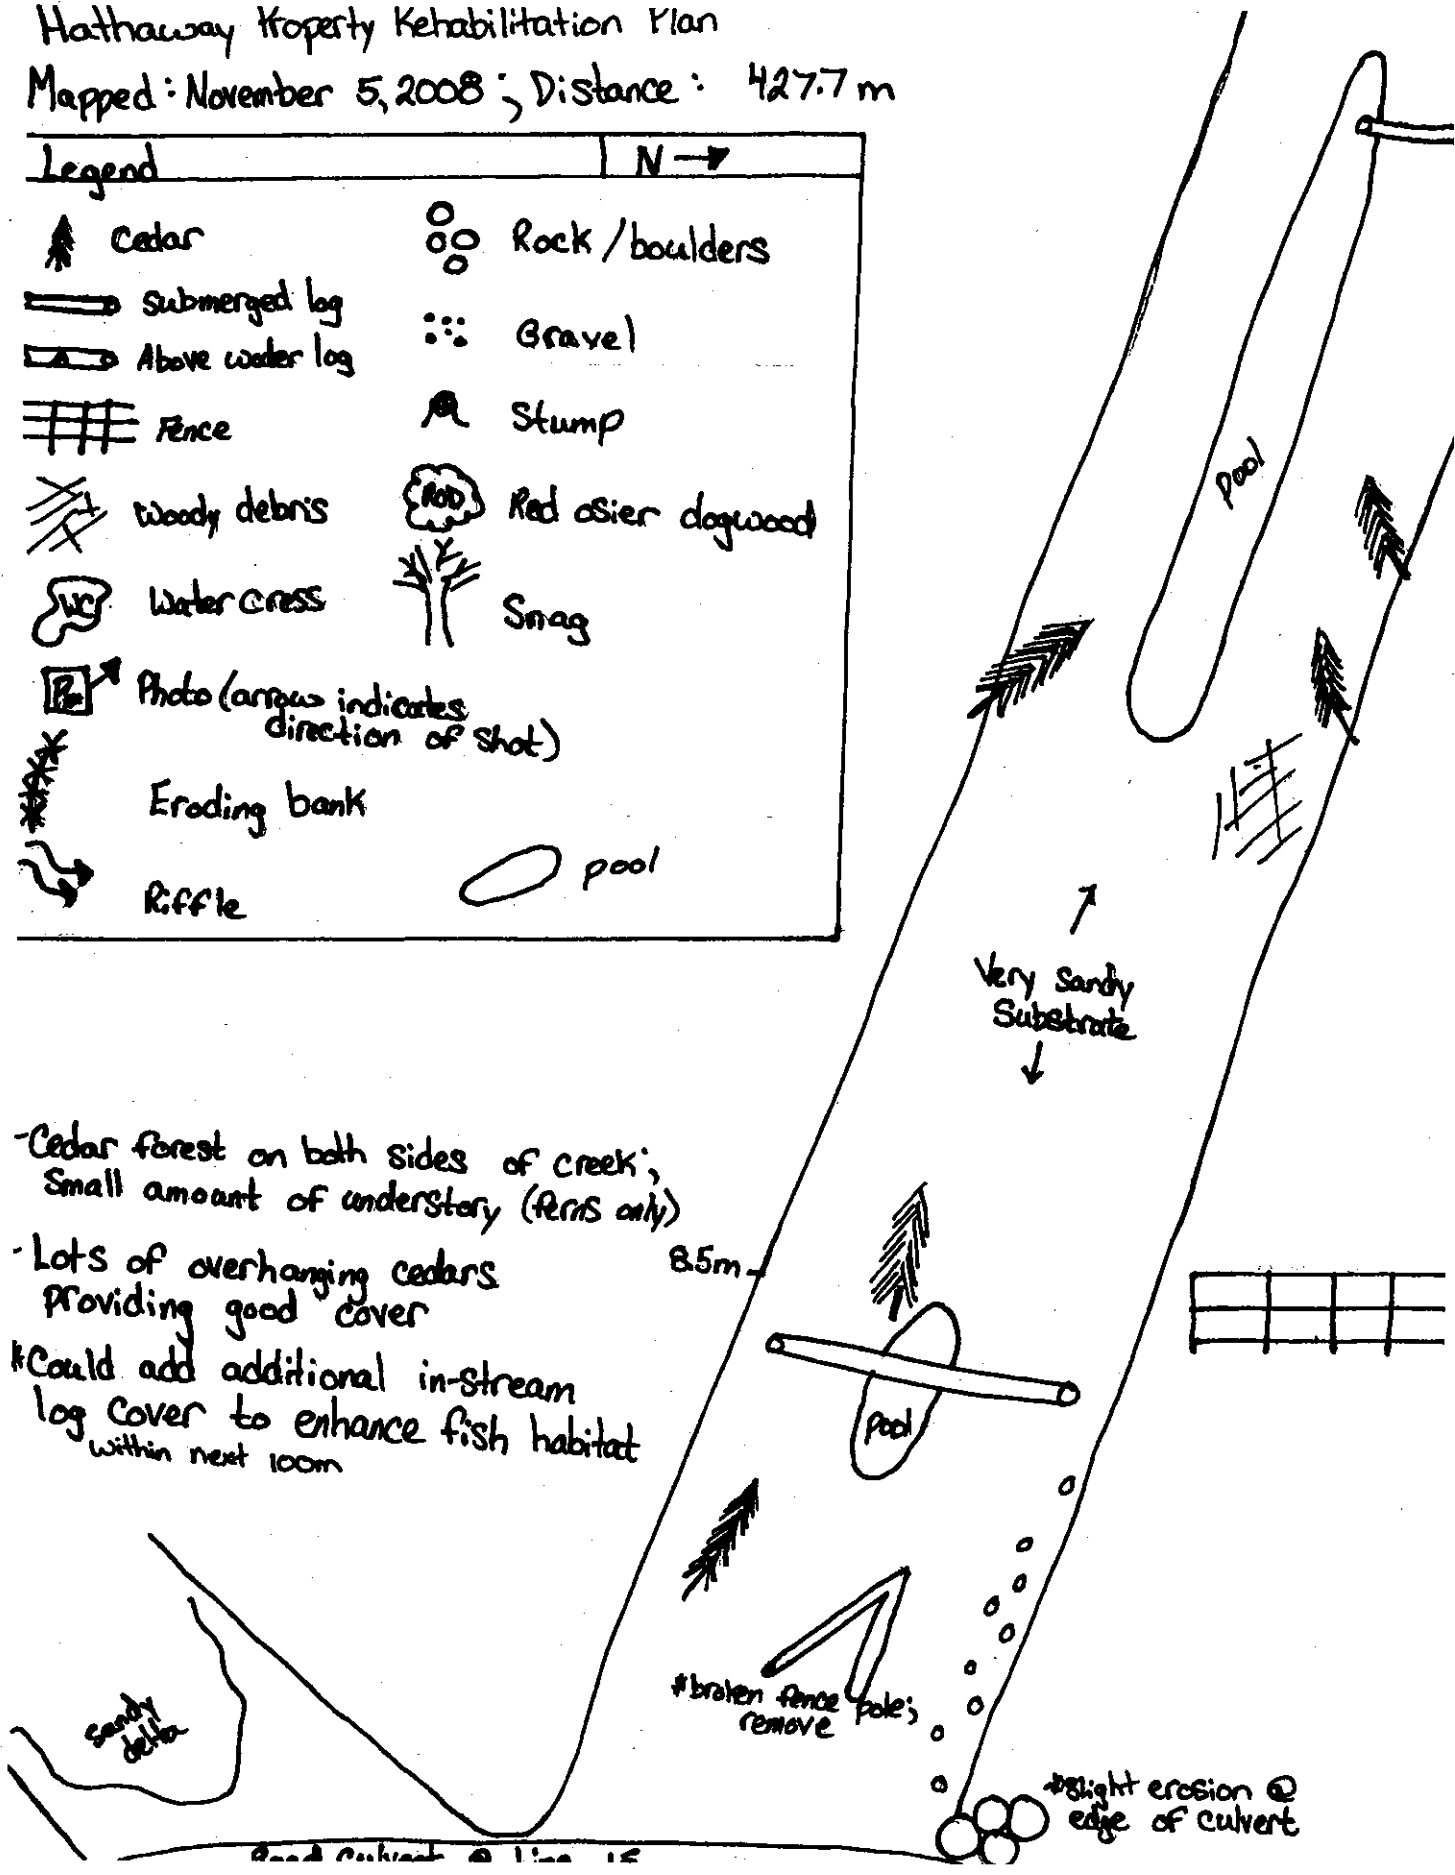 Hathaway Property Rehabilitation Plan
Mapped: November 5, 2008; Distance: 427.7 m
Legend
N →
Cedar
Submerged log
Above water log
Fence
Woody debris
WC
Water cress
Photo (arrow indicates
direction of shot)
Eroding bank
Riffle
Rock / boulders
Gravel
Stump
ROD
Red osier dogwood
Snag
pool
Pool
Very Sandy
Substrate
- Cedar forest on both sides of creek;
small amount of understory (ferns only)
- Lots of overhanging cedars
providing good cover
* Could add additional in-stream
log cover to enhance fish habitat
within next 100m
8.5m
Pool
* broken fence pole;
remove
sandy
delta
* slight erosion @
edge of culvert
Road Culvert @ Line 15